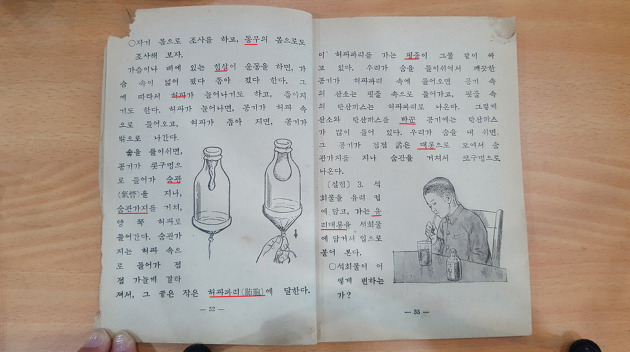 ○자기 몸으로 조사를 하고, 동무의 몸으로도
조사해 보자.
가슴이나 배에 있는 힘살이 운동을 하면, 가
슴 속이 넓어 졌다 좁아 졌다 한다. 그
에 따라서 허파가 늘어나기도 하고, 줄어지
기도 한다. 허파가 늘어나면, 공기가 허파 속
으로 들어오고, 허파가 좁아 지면, 공기가
밖으로 나간다.
숨을 들이쉬면,
공기가 콧구멍으
로 들어가 숨관
(氣管)을 지나,
숨관가지를 거쳐,
양 쪽 허파로
들어간다. 숨관가
지는 허파 속으
로 들어가 점
점 가늘게 갈라
져서, 그 끝은 작은 허파파리(肺胞)에 달한다.
— 52 —
이 허파파리를 가는 핏줄이 그물 같이 싸
고 있다. 우리가 숨을 들이쉬어서 깨끗한
공기가 허파파리 속에 들어오면 공기 속
의 산소는 핏줄 속으로 들어가고, 핏줄 속
의 탄산까스는 허파파리로 나온다. 그렇게
산소와 탄산까스를 바꾼 공기에는 탄산까스
가 많이 들어 있다. 우리가 숨을 내 쉬면,
그 공기가 점점 굵은 대롱으로 모여서 숨
관가지를 지나 숨관을 거쳐서 코구멍으로
나온다.
(실험) 3. 석
회물을 유리 컵
에 담고, 가는 유
리대롱을 석회물
에 담겨서 입으로
불어 본다.
○석회물이 어
떻게 변하는
가?
— 53 —